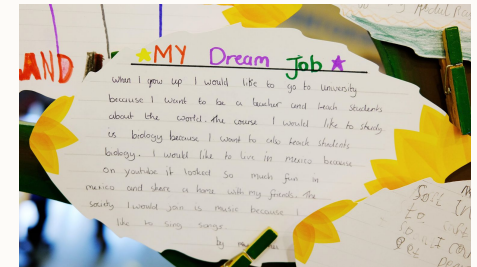 MY Dream Job
When I grow up I would like to go to university
because I want to be a teacher and teach students
about the world. The course I would like to study
is biology because I want to also teach students
biology. I would like to live in Mexico because
on youtube it looked so much fun in
mexico and share a home with my friends. The
society I would join is music because I
like to sing songs.
by
AND